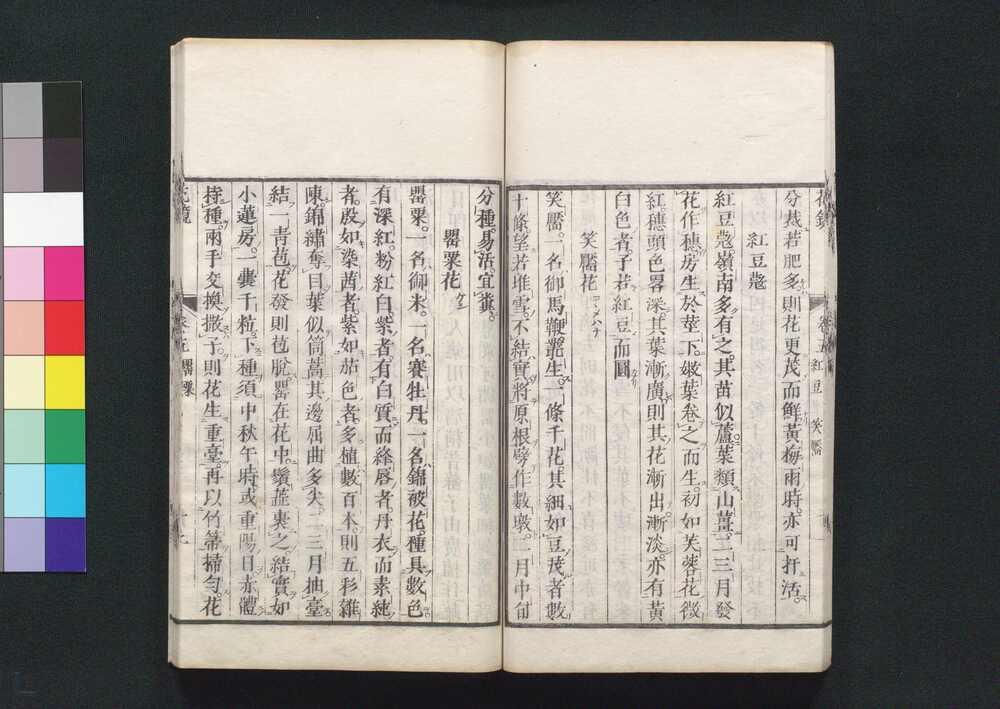 分栽若肥多則花更茂而鮮黃梅雨時亦可扦活。
紅豆蔻
紅豆蔻嶺南多有之其苗似蘆葉類山薑二三月發
花作穗房生於莖下嫩葉卷之而生初如芙蓉花微
紅穗頭色畧深其葉漸廣則其花漸出漸淡亦有黃
白色者子若紅豆而圓
笑靨花
笑靨一名御馬鞭叢生一條千花其細如豆茂者數
十條望若堆雪不結實將原根劈作數墩二月中旬
分種易活宜糞。
罌粟花
罌粟。一名御米。一名賽牡丹。一名錦被花。種具數色
有深紅粉紅白紫者有白質而絳唇者丹衣而素純
者殷如染茜者紫如茄色者多植數百本則五彩雜
陳錦繡奪目葉似茼蒿其邊屈曲多尖二三月抽薹
結一青苞花發則苞脫罌在花中鬚蕋裹之結實如
小蓮房。一囊千粒下種須中秋午時或重陽日赤體
持種兩手交換撒子則花生重臺再以竹箒掃勻花
花鏡 卷五 紅豆 笑靨
花鏡 卷五 罌粟